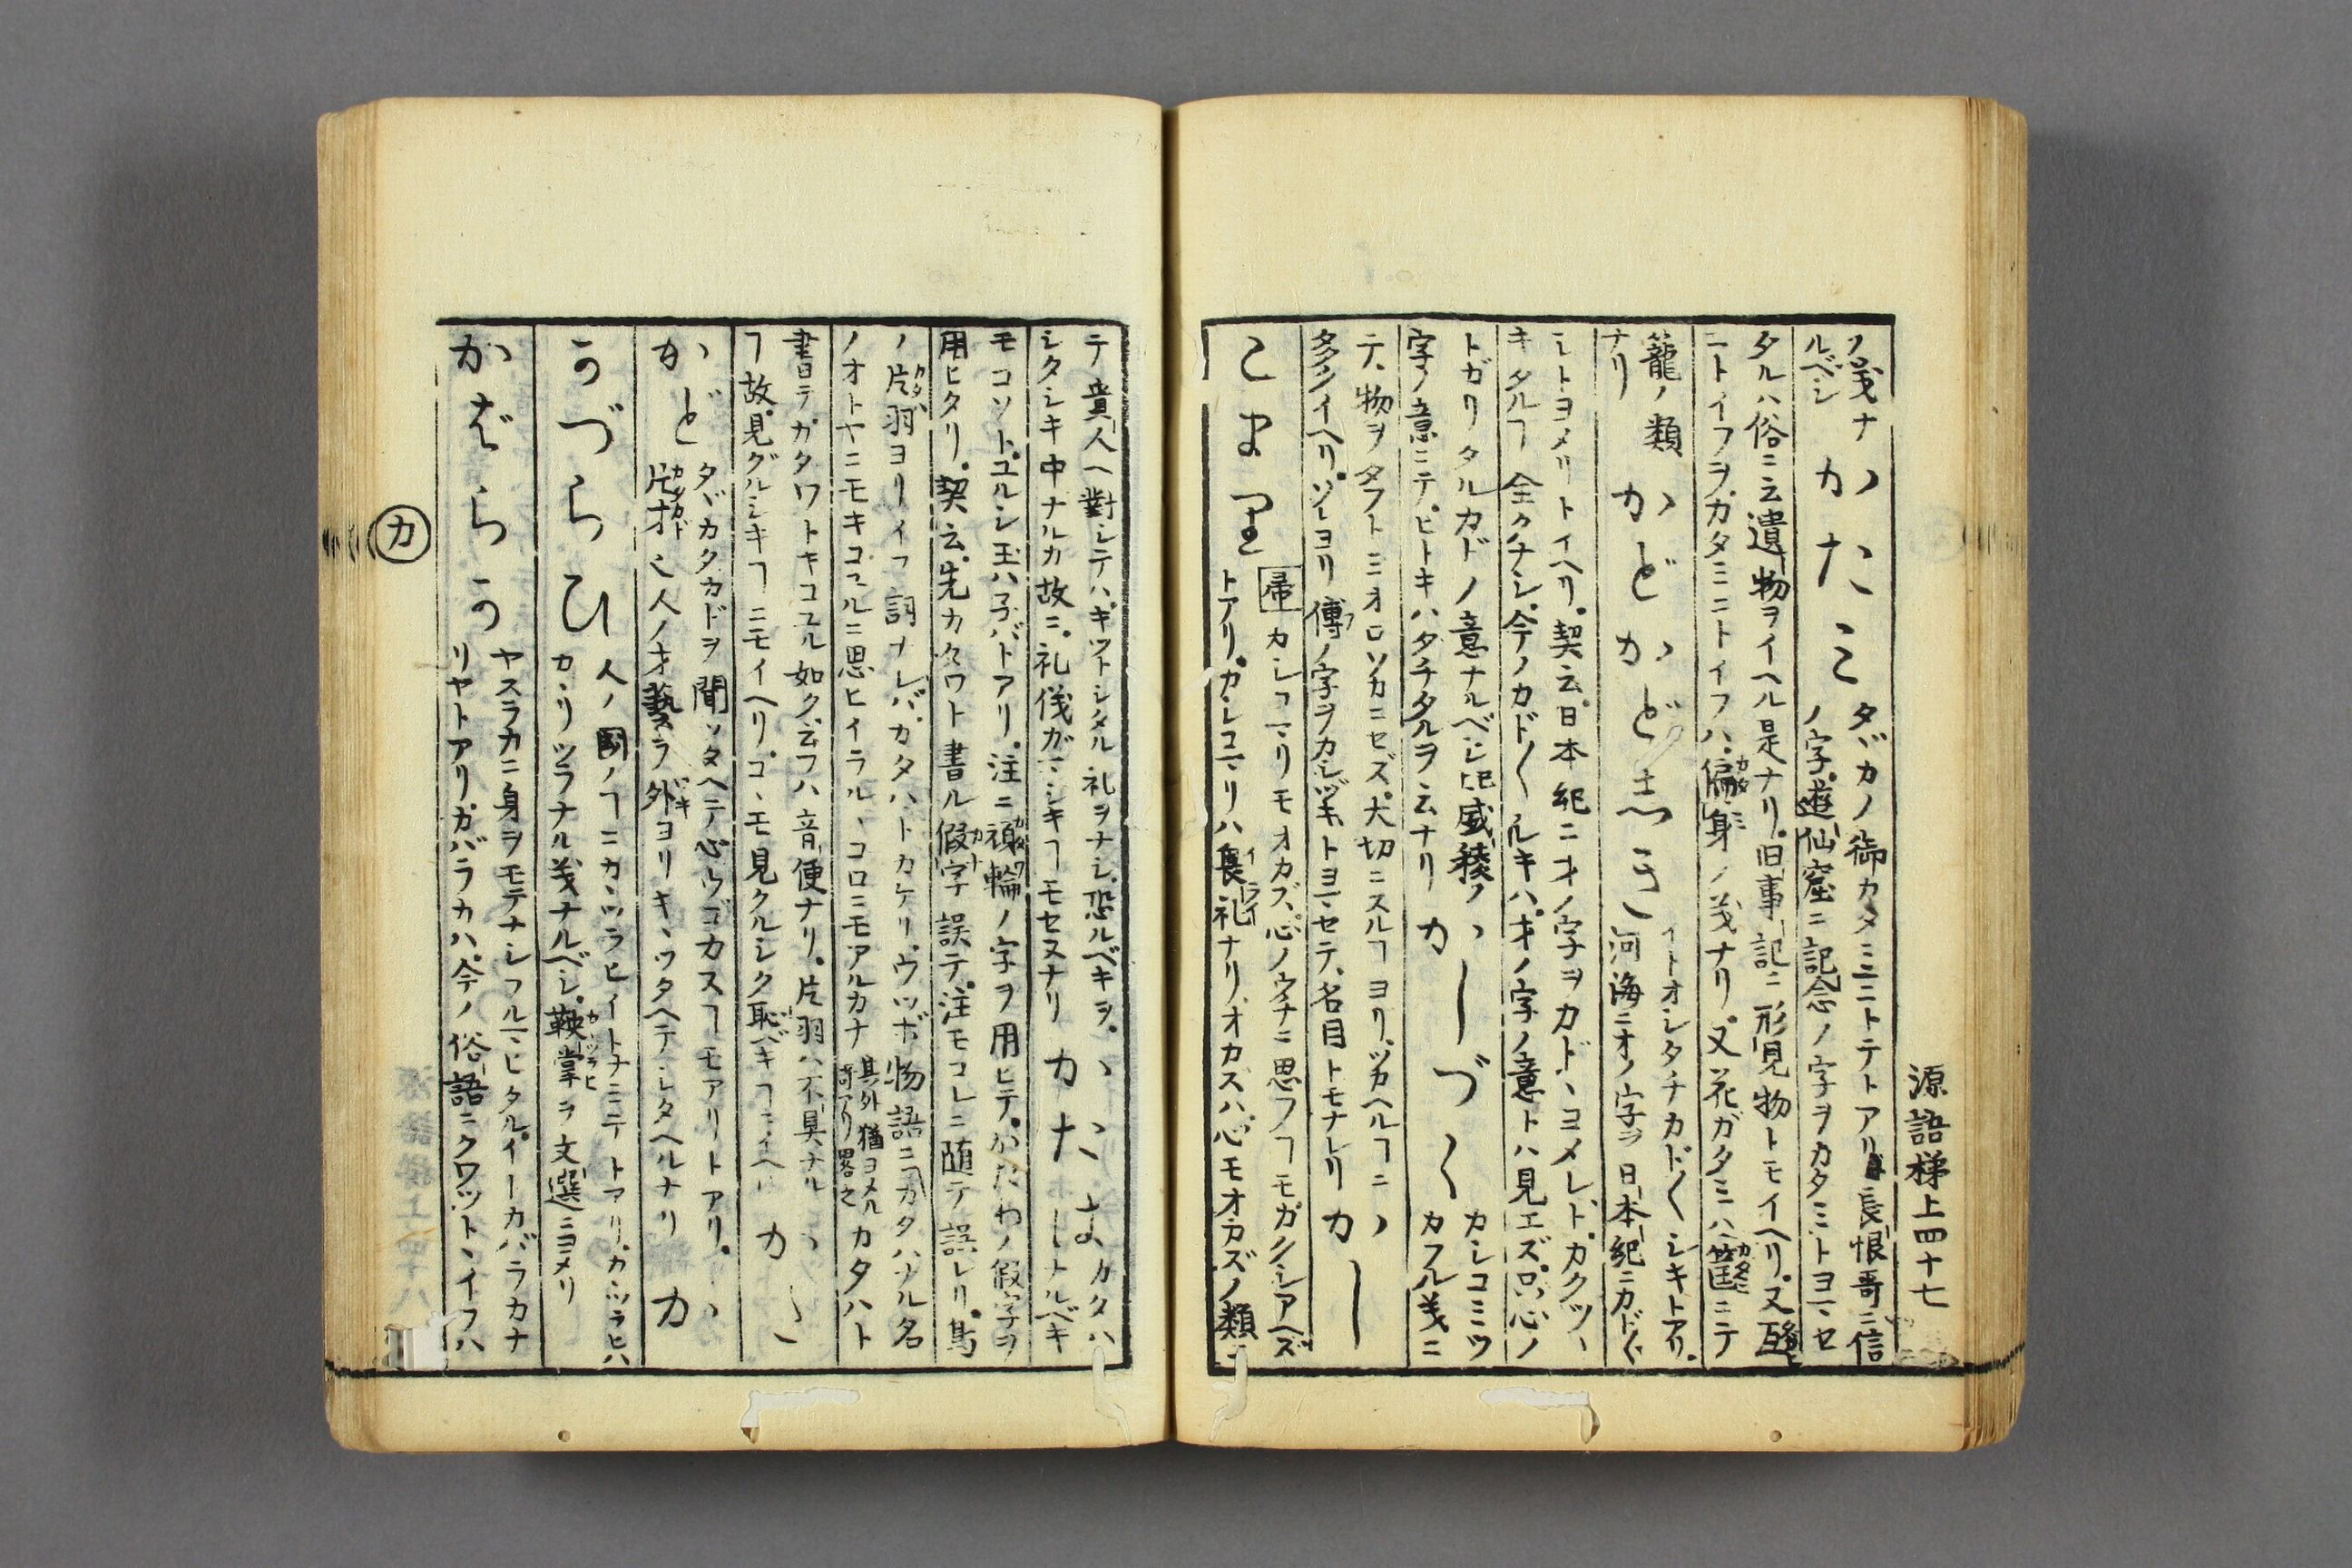 源語梯上四十七
ノ義ナ
ルベシ
かたミ
タヾカノ御カタミニトテトアリ長恨哥ニ信
ノ字遊仙窟ニ記念ノ字ヲカタミトヨマセ
タルハ俗ニ云遺物ヲイヘル是ナリ旧事記ニ形見物トモイヘリ又
ニトイフヲカタミニトイフハ偏身ノ義ナリ又花ガタミハ筐ニテ
籠ノ類
ナリ
かどかどしき
イトオシタチカド〱シキトアリ
河海ニオノ字ヲ日本紀ニカド〱
シトヨメリトイヘリ契云日本紀ニオノ字ヲカドヽヨメレドカクツヽ
キタルヿ全クナシ今ノカド〱ルキハオノ字ノ意トハ見エズ只心ノ
トガリタルカドノ意ナルベシ記威稜ノ
字ノ意ニテヒトキハタチタルヲ云ナリ
かしづく
カシコミツ
カフル義ニ
テ物ヲタフトミオロソカニセズ大切ニスルヿヨリツカヘルヿニ
多クイヘリソレヨリ傅ノ字ヲカシヅキトヨマセテ名目トモナレリ
かし
こまり
帚カシコマリモオカズ心ノウチニ思フヿモカクシアヘズ
トアリカシコマリハ長礼ナリオカスハ心モオカズノ類
テ貴人ヘ對シテハキツトシタル礼ヲナシ恐ルベキヲ
シタシキ中ナルカ故ニ礼儀ガマシキヿモセヌナリ
かたは
カタハ
ナルベキ
モコソトユルシ玉ハ子バトアリ注ニ頑輪ノ字ヲ用ヒテかたわノ假字ヲ
用ヒタリ契云先カタワト書ル假字誤テ注モコレニ随テ誤レリ馬
ノ片羽ヨリイフ詞ナレバカタハトカケリウツボ物語ニカタハナル名
ノオトヤニモキコユルニ思ヒイラルヽコロニモアルカナ其外猶ヨメル哥アリ畧之カタハト
書テカタワトキコユル如ク云フハ音便ナリ片羽ハ不具ナル
ヿ故見グルシキヿニモイヘリコヽモ見クルシク恥ベキヿニイヘリ
かど
タヾカタカドヲ聞ツタヘテ心ウゴカスヿモアリトアリ
片才也人ノ才藝ヲ外ヨリキヽツタヘテシタヘルナリ
かゝ
づらひ
人ノ國ノヿニカヽツラヒイトナミニテトアリカヽツラヒハ
カヽリツラナル義ナルベシ鞅掌ヲ文選ニヨメリ
か
ばらう
ヤスラカニ身ヲモテナシフルマヒタルイトカバラカナ
リヤトアリカバラカハ今ノ俗語ニクワツトイフハ
カ